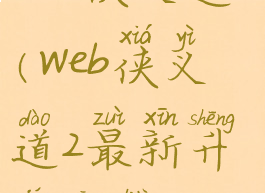 xiá yì
(web侠义
dào zuì xīn shēng
道2最新升